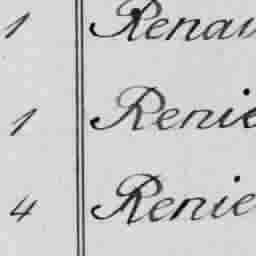 1 Renau
1 Renie
4 Renie